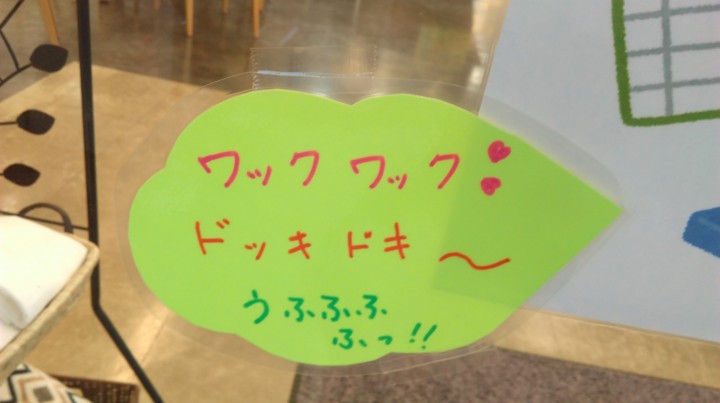 ワックワック
ドッキドキ〜
うふふふ
ふっ!!